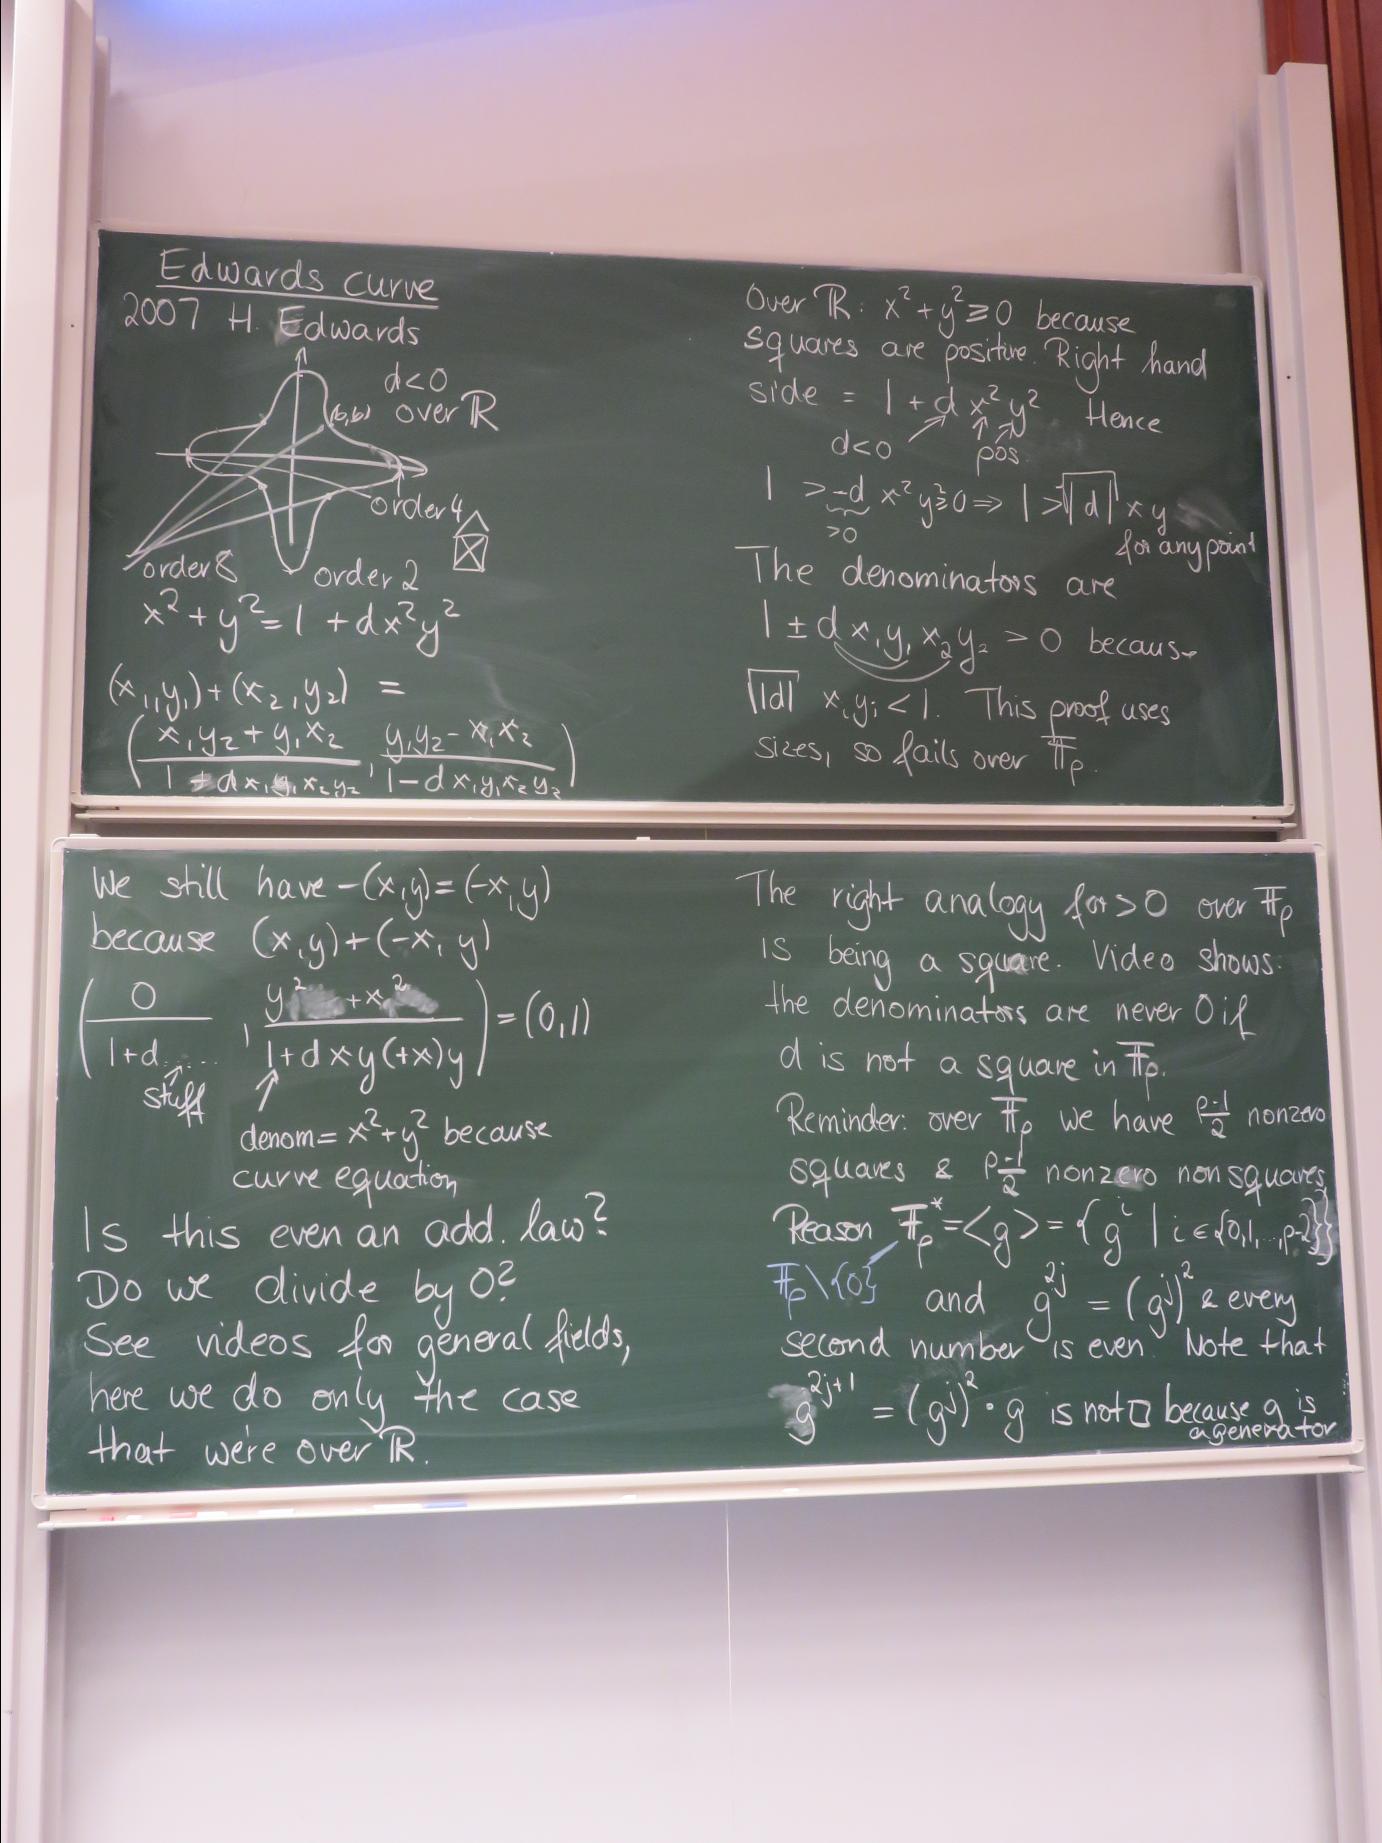 Edwards curve
2007 H. Edwards
d<0
(b,b) over ℝ
order 4
order 8
order 2
x² + y² = 1 + dx²y²
(x₁,y₁) + (x₂,y₂) =
(x₁y₂ + y₁x₂ / 1 + dx₁y₁x₂y₂ , y₁y₂ − x₁x₂ / 1 − dx₁y₁x₂y₂)
Over ℝ: x² + y² ≥ 0 because
squares are positive. Right hand
side = 1 + d x² y² Hence
d<0 pos
1 > −d x² y² ≥ 0 ⇒ 1 > √|d| x y
>0
for any point
The denominators are
1 ± d x₁y₁ x₂y₂ > 0 because
√|d| xᵢyᵢ < 1. This proof uses
sizes, so fails over 𝔽ₚ.
We still have −(x,y) = (−x,y)
because (x,y) + (−x, y)
(0 / 1+d...... , y² + x² / 1+dxy(+x)y) = (0,1)
stuff
denom = x²+y² because
curve equation
Is this even an add. law?
Do we divide by 0?
See videos for general fields,
here we do only the case
that we're over ℝ.
The right analogy for >0 over 𝔽ₚ
is being a square. Video shows:
the denominators are never 0 if
d is not a square in 𝔽ₚ.
Reminder: over 𝔽ₚ we have p-1/2 nonzero
squares & p-1/2 nonzero nonsquares
Reason 𝔽ₚ* = <g> = {gⁱ | i ∈ {0,1,...,p-2}}
𝔽ₚ\{0}
and g²ʲ = (gʲ)² & every
second number is even. Note that
g²ʲ⁺¹ = (gʲ)² · g is not □ because g is
a generator